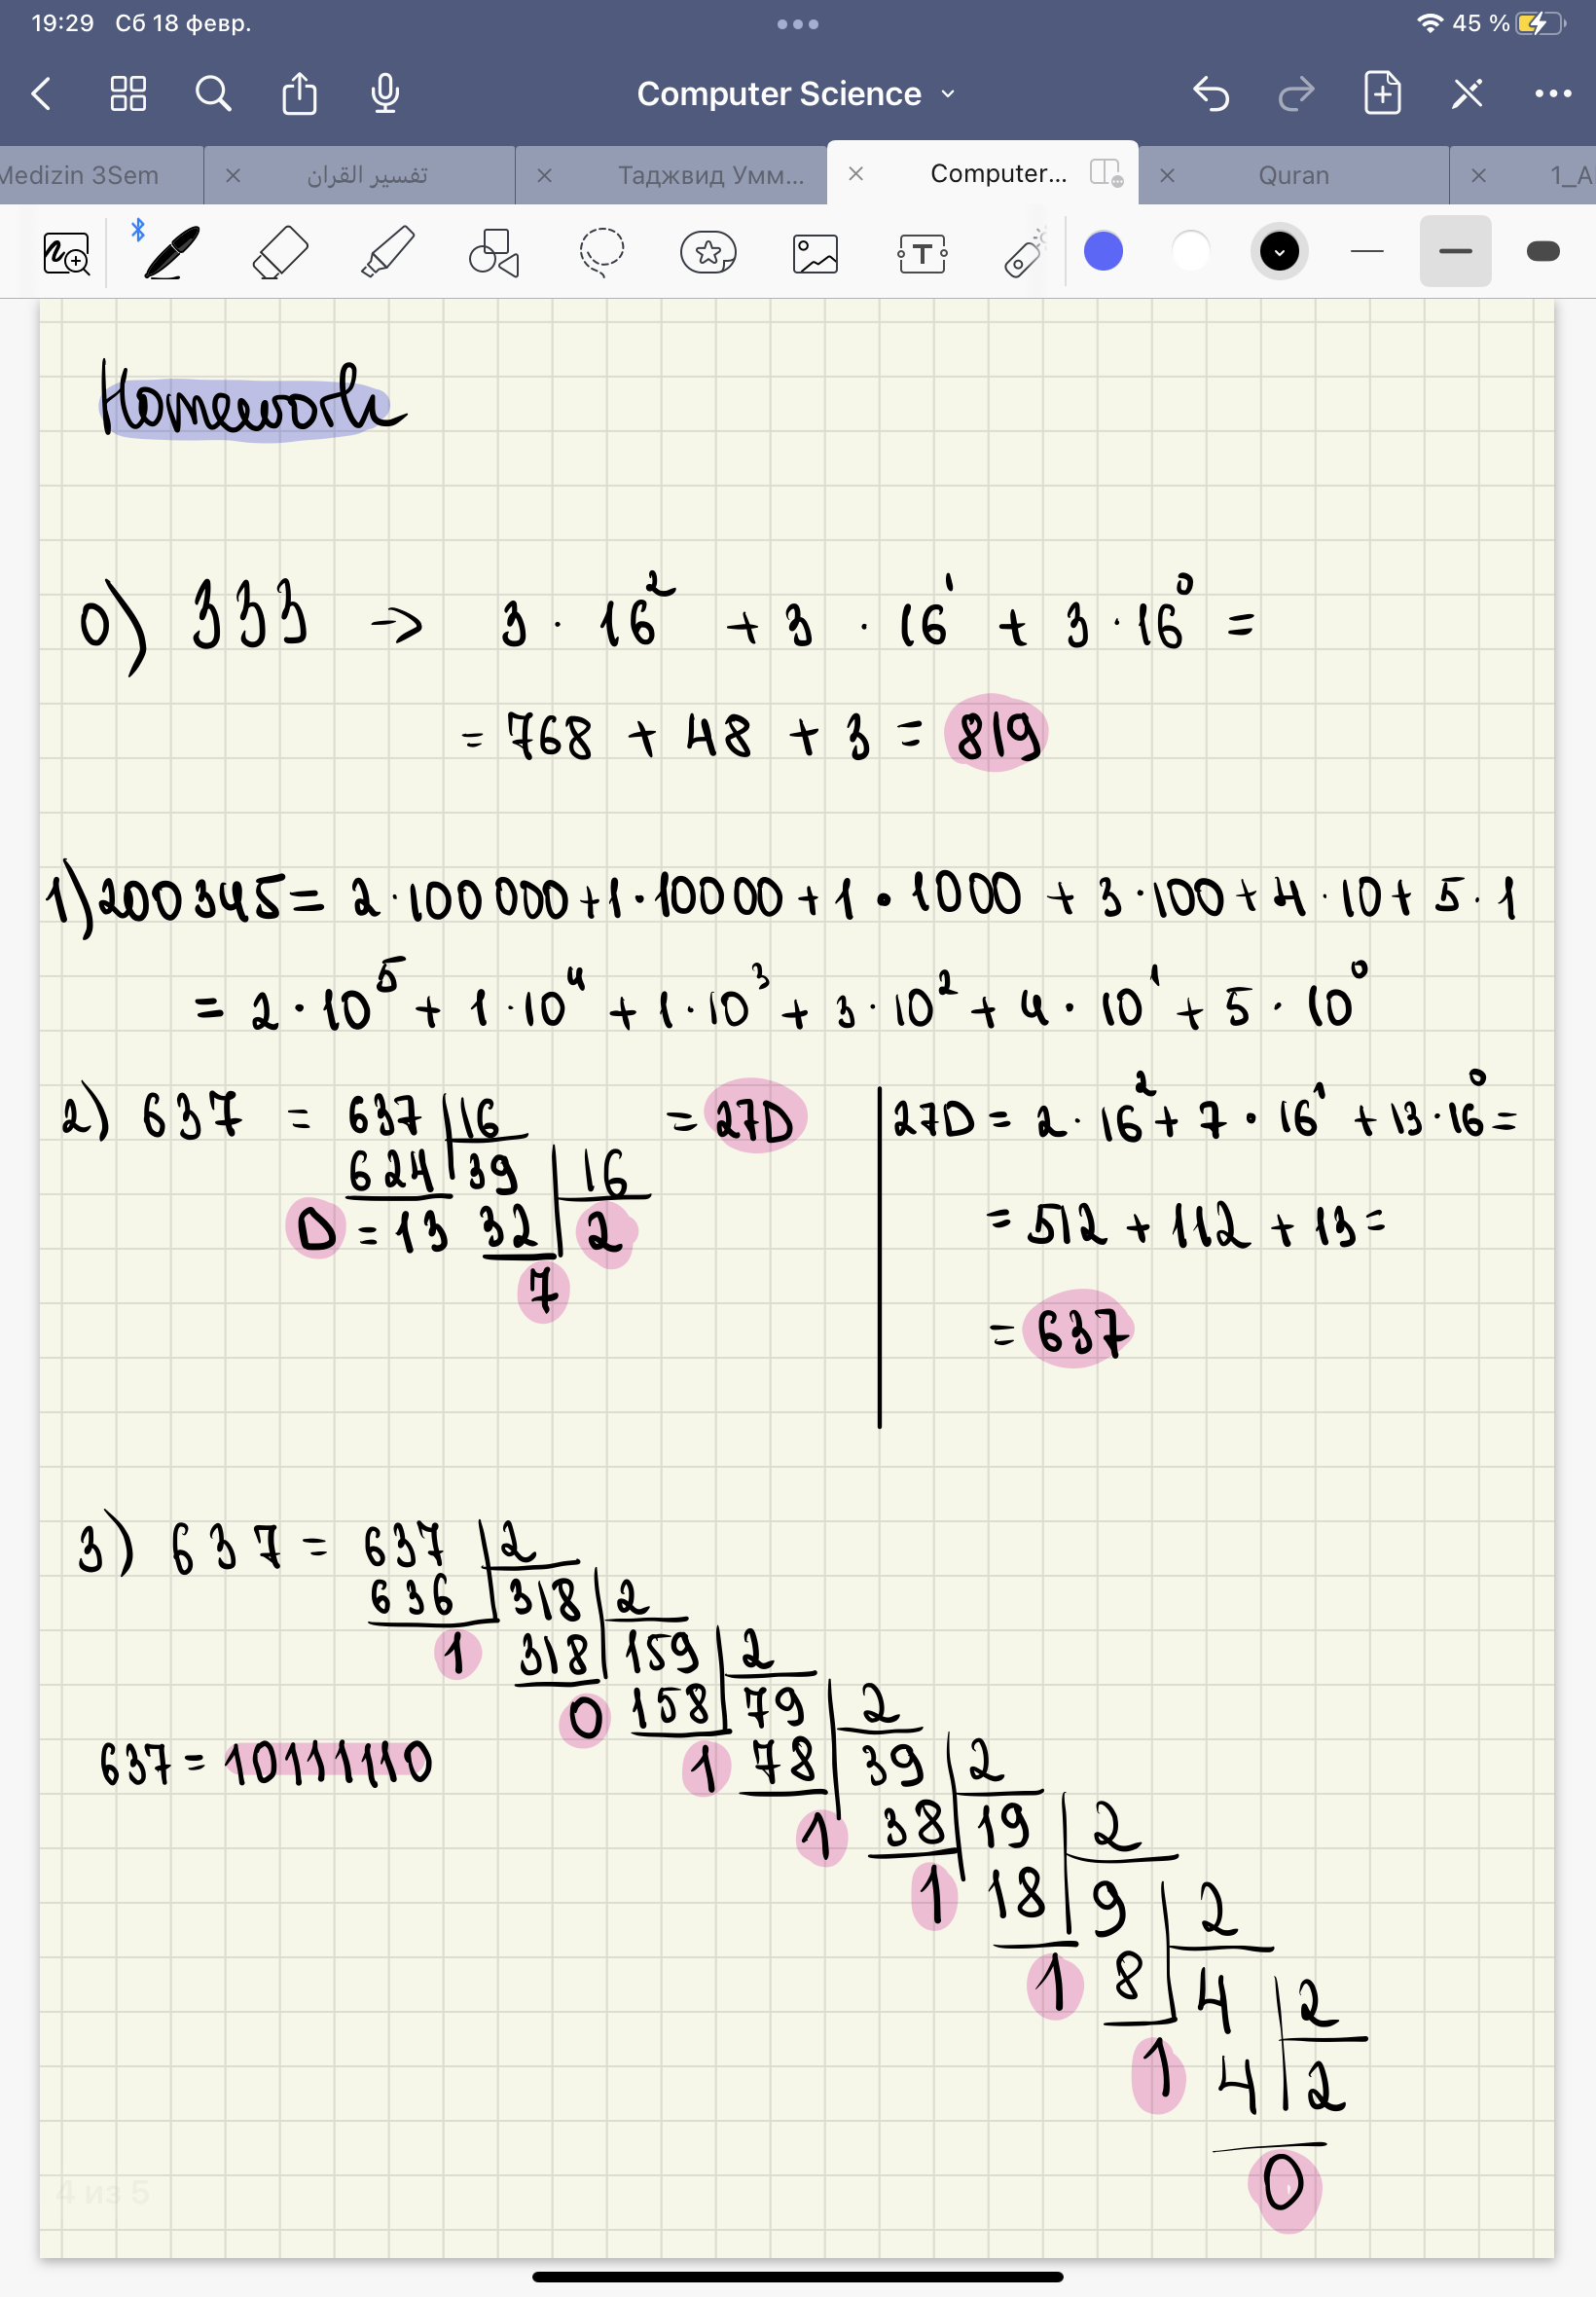 19:29 Сб 18 февр.
45 %
Computer Science
Medizin 3Sem
تفسير القران
Таджвид Умм...
Computer...
Quran
1_A
Homework
0) 333 → 3 · 16² + 3 · 16¹ + 3 · 16⁰ =
= 768 + 48 + 3 = 819
1) 200345 = 2 · 100 000 + 1 · 10000 + 1 · 1000 + 3 · 100 + 4 · 10 + 5 · 1
= 2 · 10⁵ + 1 · 10⁴ + 1 · 10³ + 3 · 10² + 4 · 10¹ + 5 · 10⁰
2) 637 = 637 16 = 27D
624 39 16
D = 13 32 2
7
27D = 2 · 16² + 7 · 16¹ + 13 · 16⁰ =
= 512 + 112 + 13 =
= 637
3) 637 = 637 2
636 318 2
1 318 159 2
0 158 79 2
637 = 10111110
1 78 39 2
1 38 19 2
1 18 9 2
1 8 4 2
1 4 2
0
4 из 5